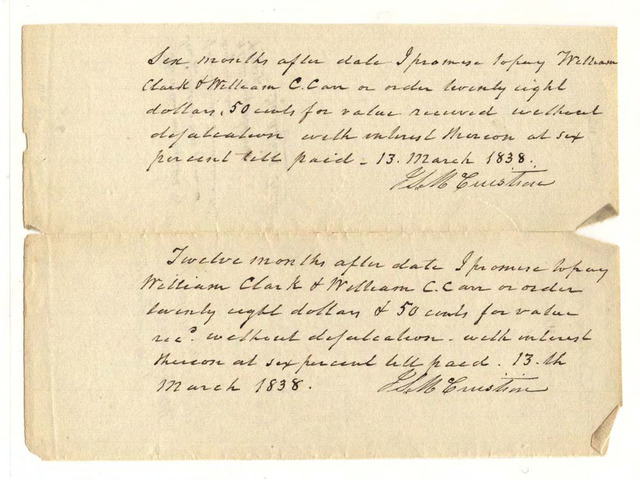 Six months after date I promise to pay William
Clark & William C. Carr or order twenty eight
dollars, 50 cents for value received without
defalcation with interest thereon at six
percent till paid - 13. March 1838.
Twelve months after date I promise to pay
William Clark & William C. Carr or order
twenty eight dollars & 50 cents for value
recd. without defalcation - with interest
thereon at six percent till paid. 13.th
March 1838.